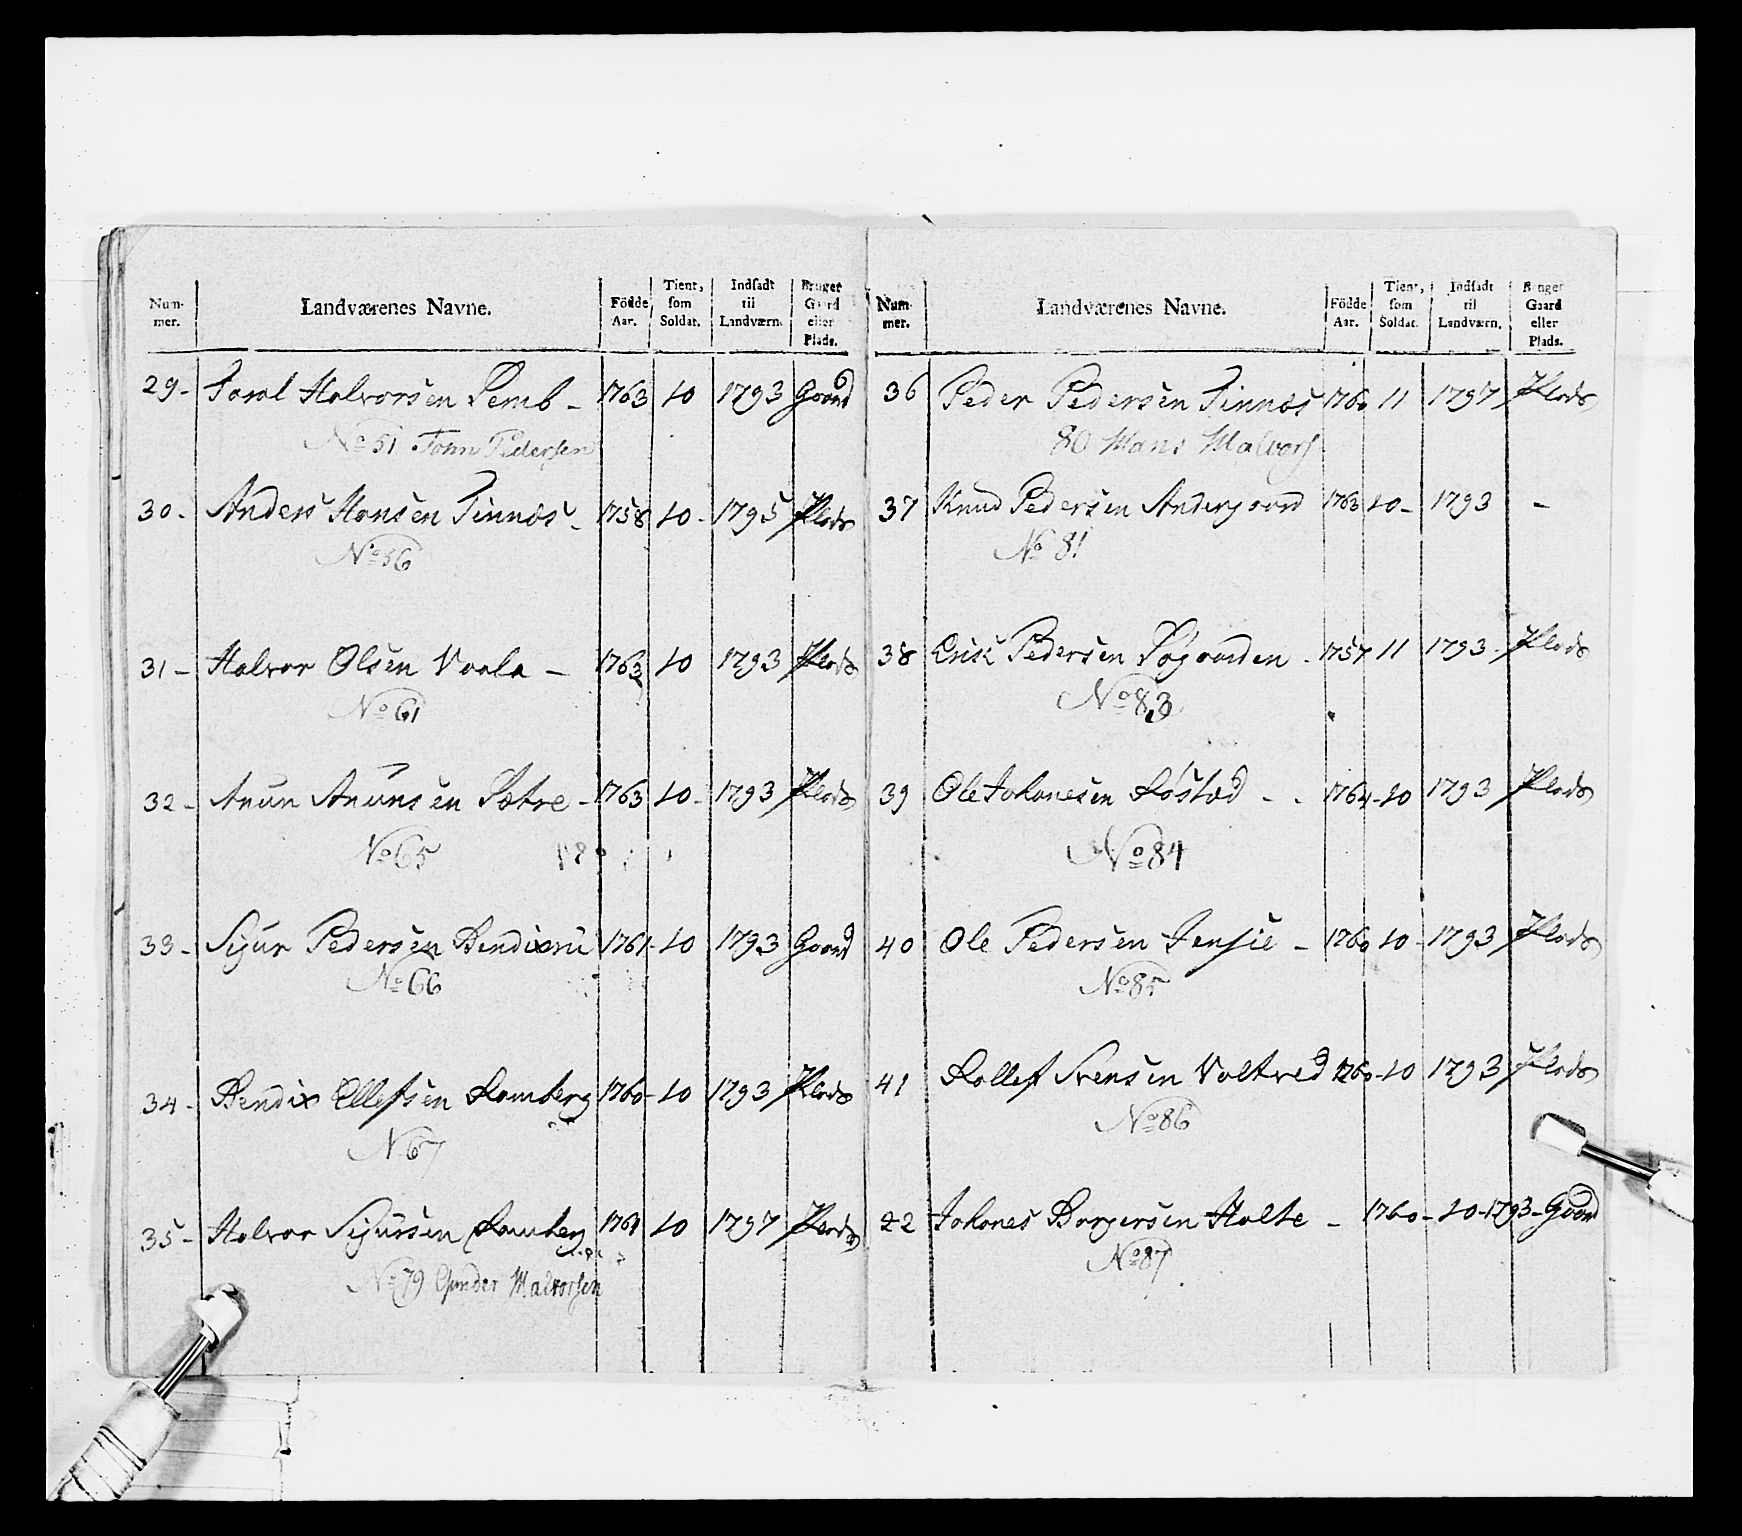 Num- mer. Landværenes Navne. Födde Aar. Tient, som Soldat. Indsadt til Landværn. Bruger Gaard eller Plads.
29- Taral Halvorsen Lemb - 1763 10 1793 Goard
No 51 John Pedersen
30- Anders Hansen Tinnæs - 1758 10- 1795 Plads
No 56
31- Halvor Olsen Vaala - 1763 10 1793 Plads
No 61
32- Anun Anunsen Sætre - 1763 10- 1793 Plads
No 65
33- Sijur Pedersen Bendixrü 1761- 10 1793 Goard
No 66
34- Bendix Ellefsen Ramberg 1760- 10 1793 Plads
N 67
35- Halvor Sijursen Ramberg 1761 10 1797 Plads
No 79 Gunder Halvorsen
Num- mer. Landværenes Navne. Födde Aar. Tient, som Soldat. Indsadt til Landværn. Bruger Gaard eller Plads.
36 Peder Pedersen Tinnæs 1760 11 1797 Plads
80 Hans Halvors
37 Knud Pedersen Andergaard 1763 10- 1793 -
No 81
38 Erik Pedersen Søgaarden - 1757 11 1793- Plads
No 83
39 Ole Johanesen Røstad - - 1764- 10 1793 Plads
No 84
40 Ole Pedersen Jensie - 1760 10- 1793 Plads
No 85
41 Rollef Svensen Valtved 1760- 10 1793 Plads
No 86
22 Johanes Borgersen Holte - 1760- 10- 1793- Goard
No 87